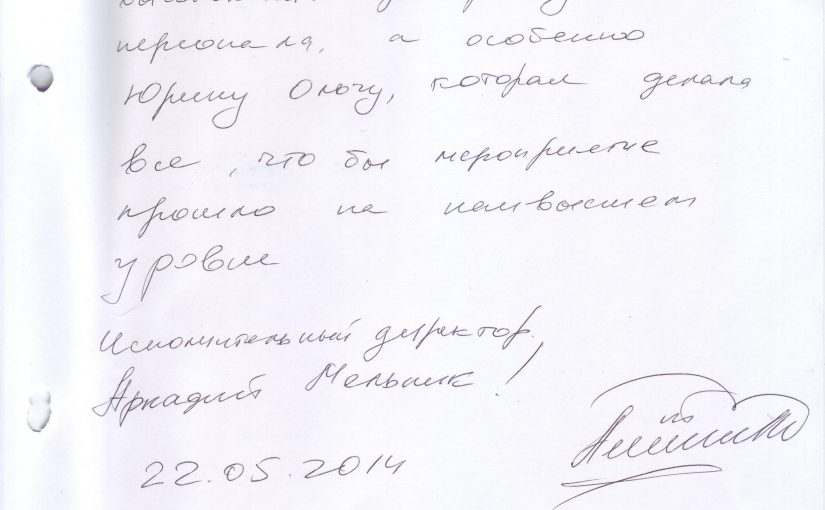 персонала, а особенно
Юрину Ольгу, которая делала
все, что бы мероприятие
прошло на наивысшем
уровне
Исполнительный директор
Аркадий Мельник!
22.05.2014